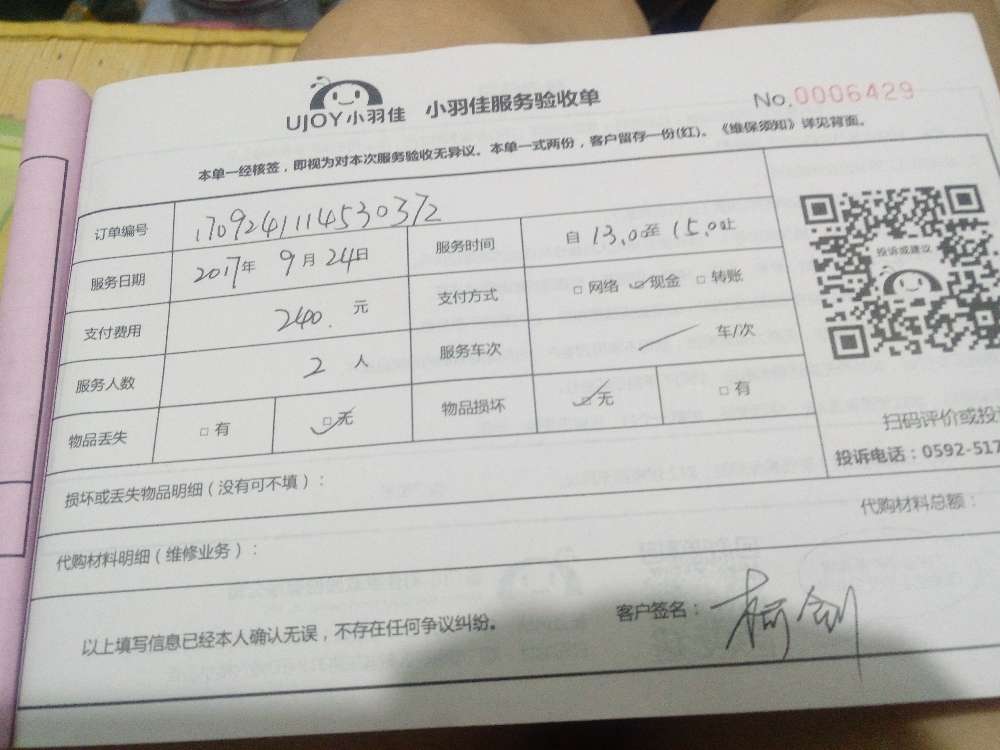 UJOY小羽佳 小羽佳服务验收单 No.0006429
本单一经核签，即视为对本次服务验收无异议。本单一式两份，客户留存一份(红)。《维保须知》详见背面。
订单编号 1709241114530372
服务日期 2017年 9月 24日 服务时间 自 13.0至 15.0止
支付费用 240. 元 支付方式 □ 网络 ☑ 现金 □ 转账
服务人数 2 人 服务车次 车/次
物品丢失 □ 有 ☑ 无 物品损坏 ☑ 无 □ 有
投诉或建议
扫码评价或投
投诉电话：0592-517
损坏或丢失物品明细（没有可不填）：
代购材料明细（维修业务）： 代购材料总额：
以上填写信息已经本人确认无误，不存在任何争议纠纷。 客户签名：